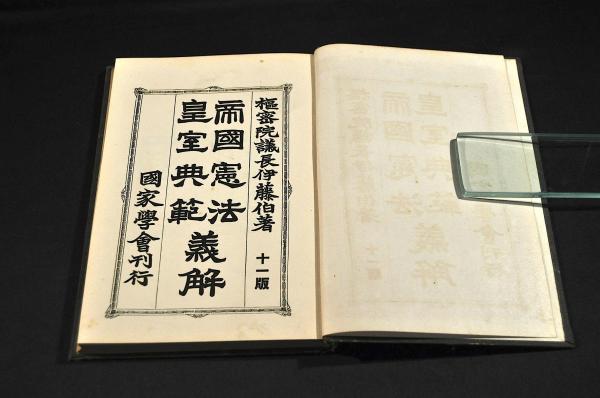 樞密院議長伊藤伯著
十一版
帝國憲法
皇室典範
義解
國家學會刊行